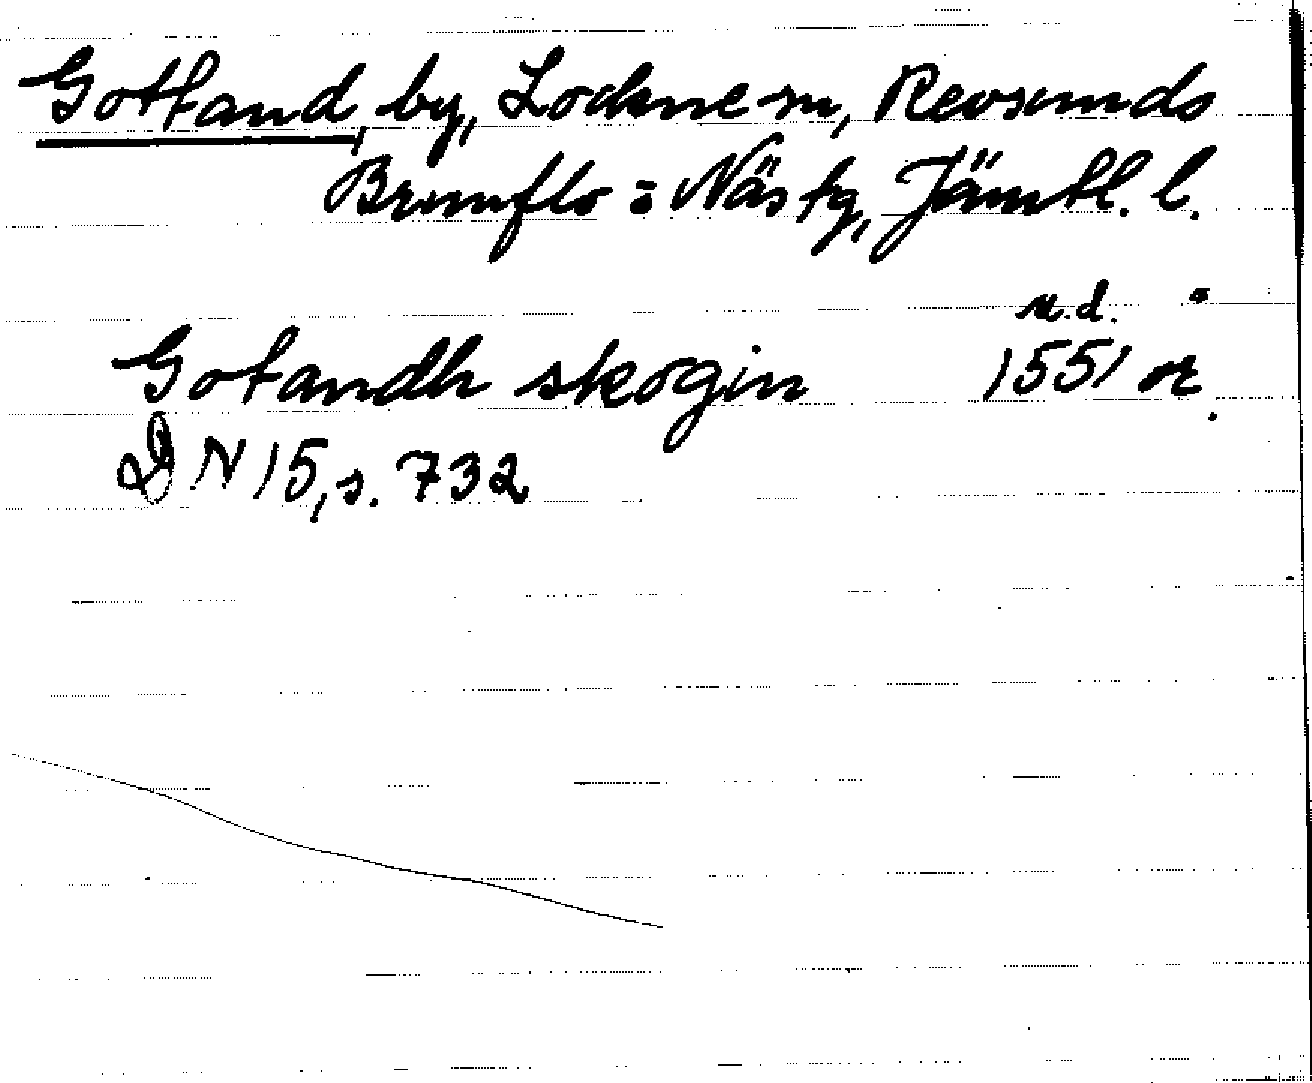 Gottand, by, Lockne sn, Revsunds
Brunflo = Näs tg, Jämtl. l.
u.d.
Gotandh skogin 1551 or.
DN 15, s. 732